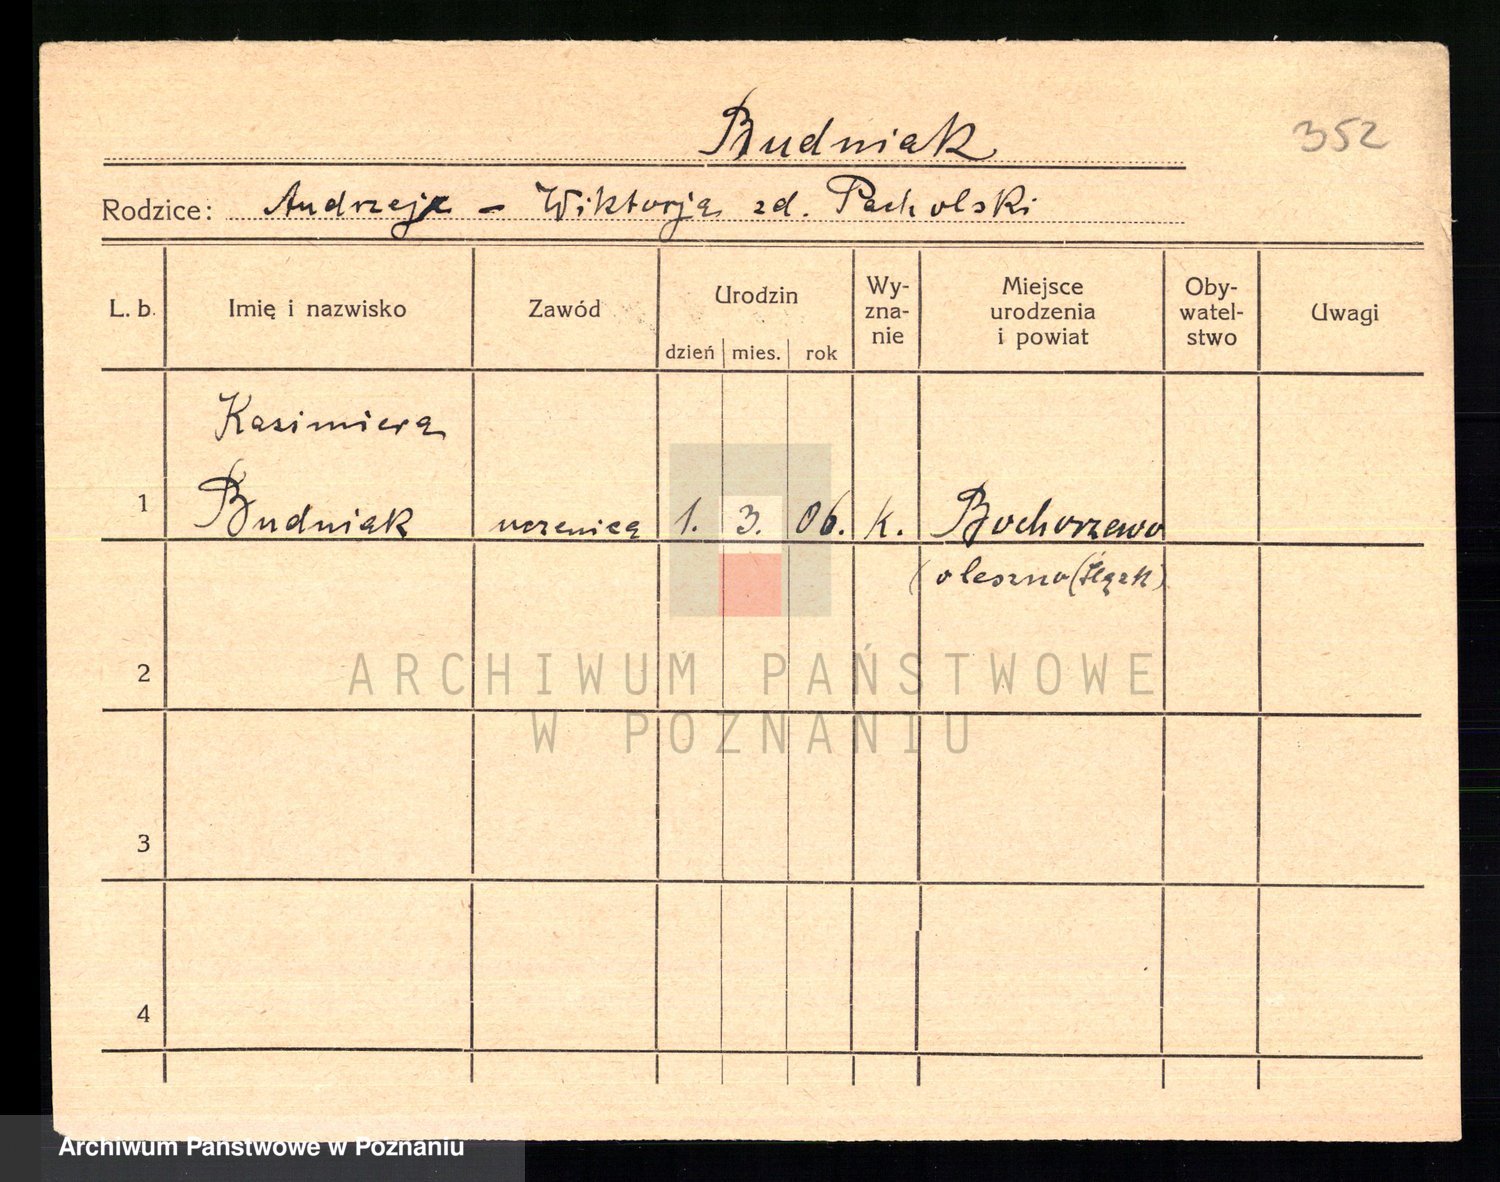 Budniak
352
Rodzice: Andrzej - Wiktorja zd. Pacholski
L. b.
Imię i nazwisko
Zawód
Urodzin
dzień
mies.
rok
Wy-
zna-
nie
Miejsce
urodzenia
i powiat
Oby-
watel-
stwo
Uwagi
Kazimiera
1
Budniak
uczenica
1.
3.
06.
k.
Bochorzewo
(oleszno (Śląsk)
2
3
4
ARCHIWUM PAŃSTWOWE
W POZNANIU
Archiwum Państwowe w Poznaniu